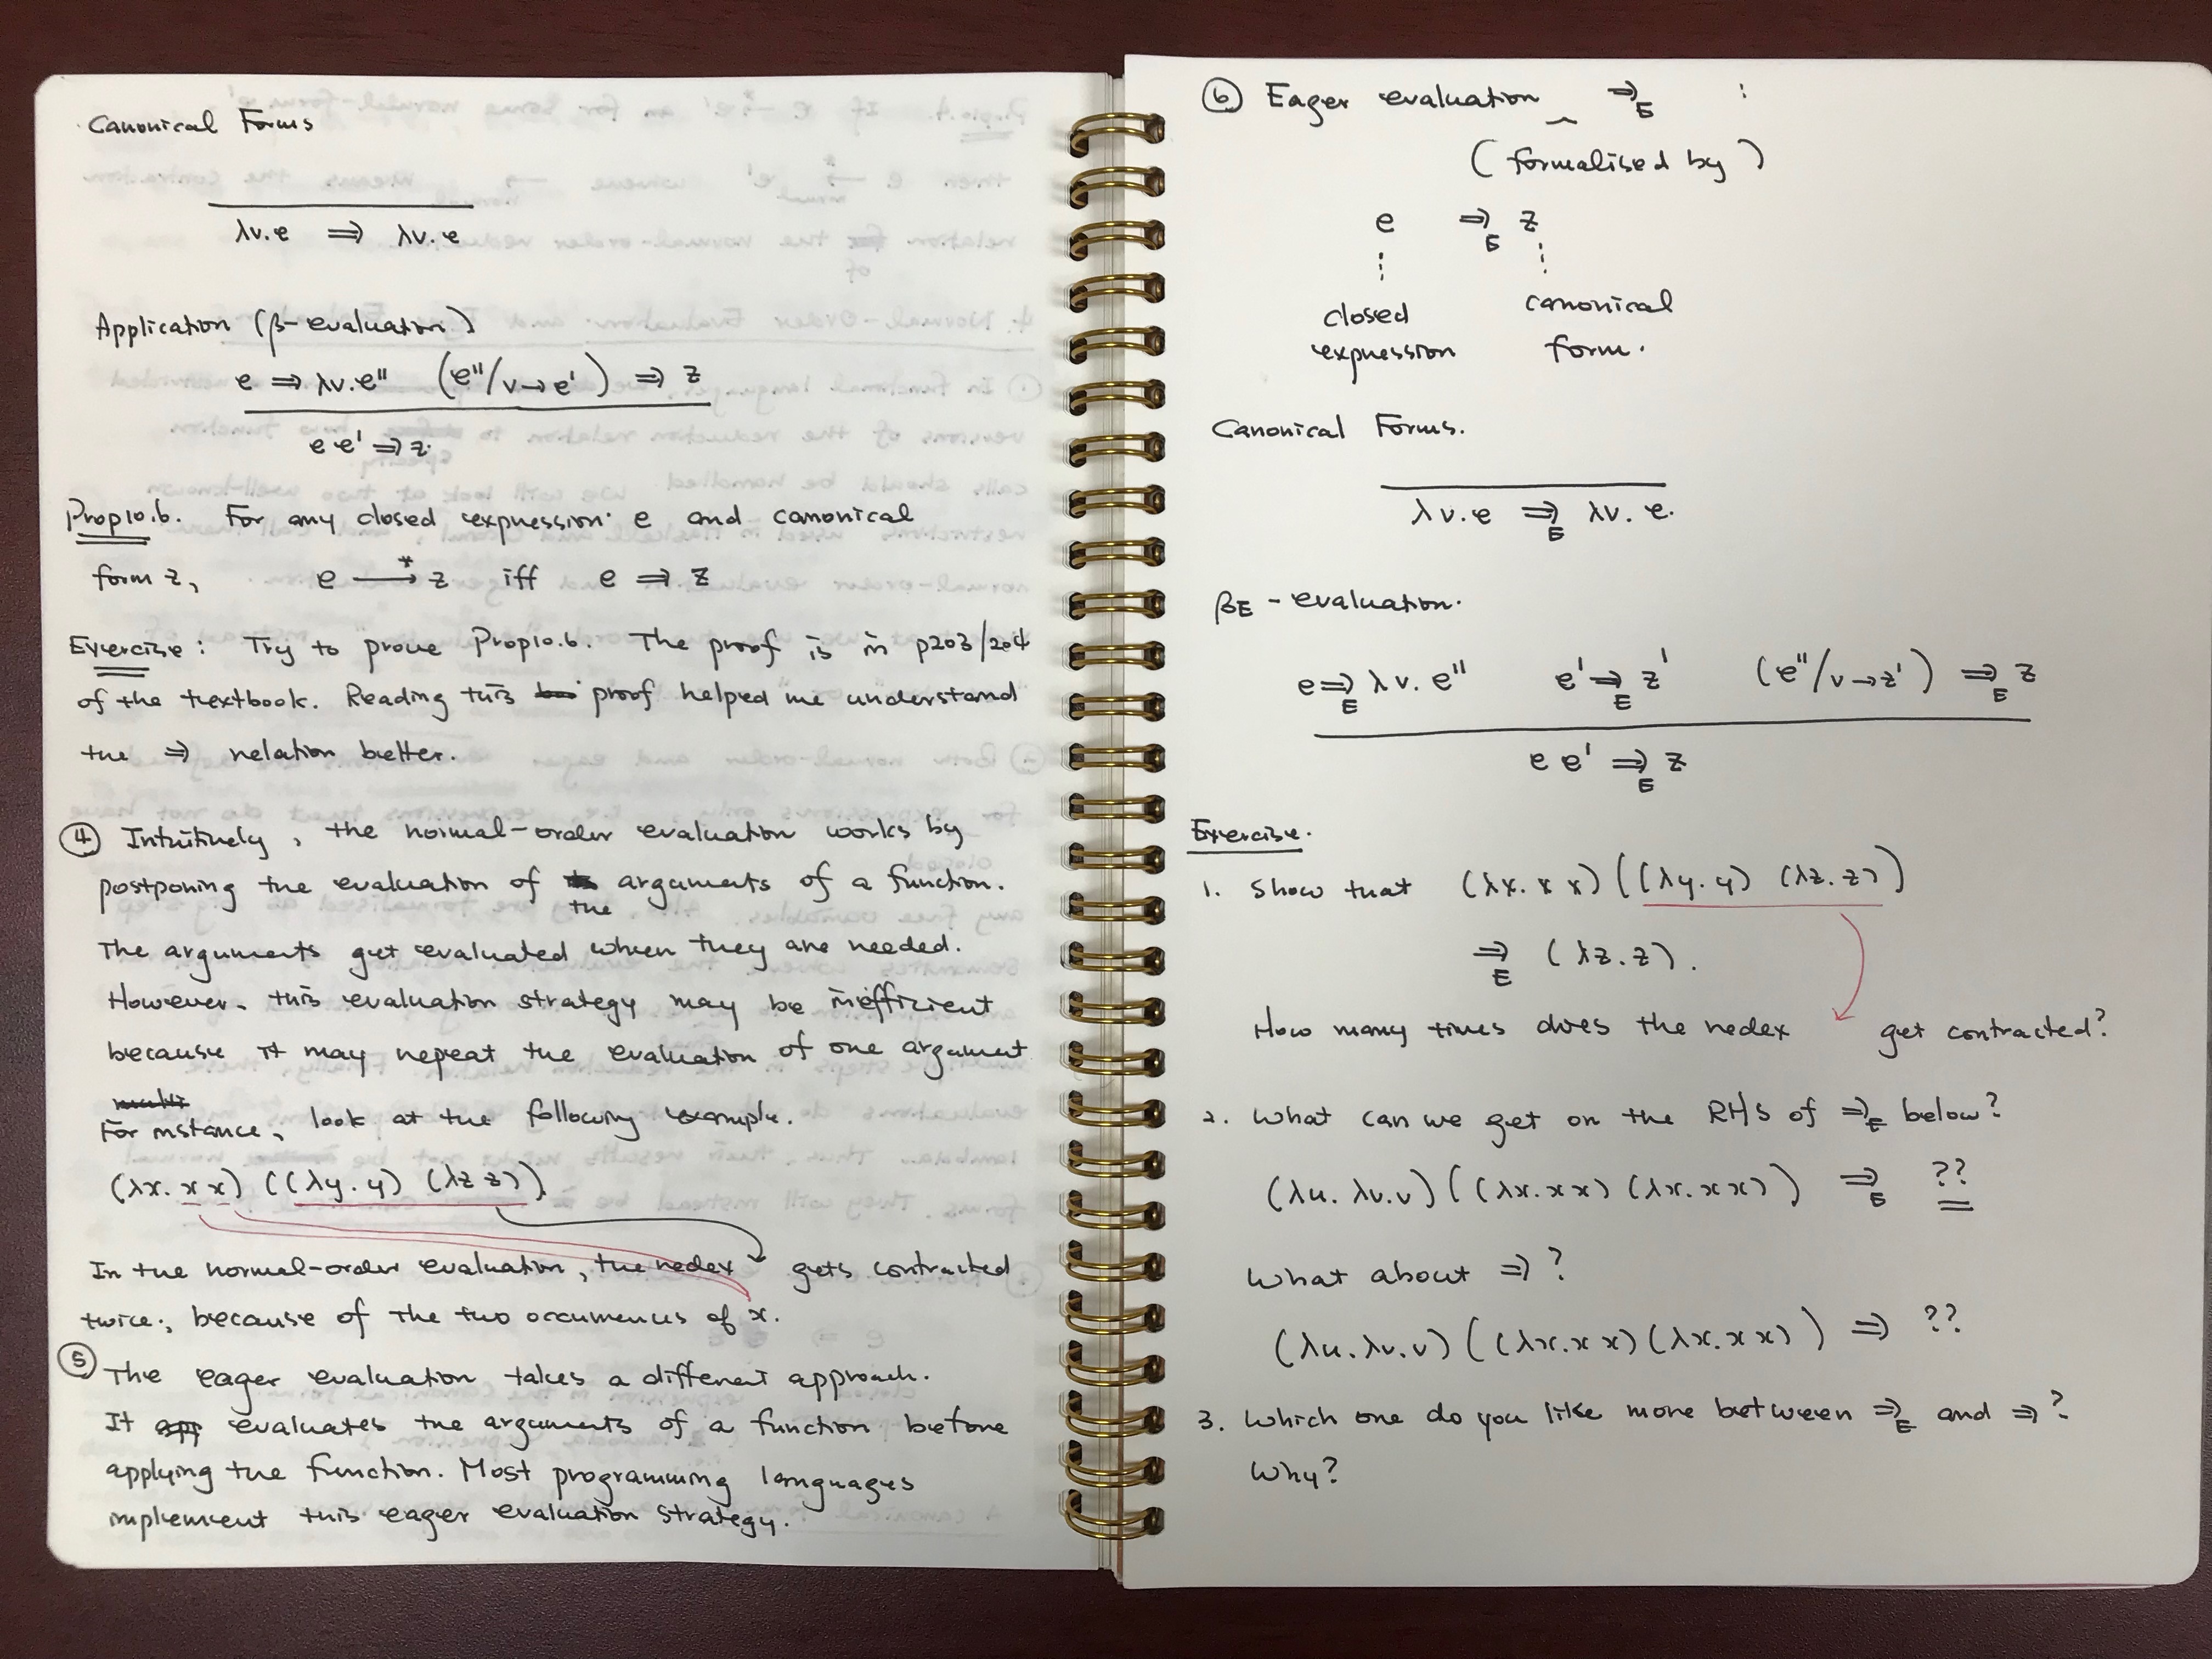 Canonical Forms
λv.e ⇒ λv.e
Application (β-evaluation)
e ⇒ λv.e'' (e''/v→e') ⇒ z
e e' ⇒ z.
Prop10.6. For any closed expression e and canonical
form z, e →* z iff e ⇒ z
Exercise: Try to prove Prop10.6. The proof is in p203/204
of the textbook. Reading this proof helped me understand
the ⇒ relation better.
④ Intuitively, the normal-order evaluation works by
postponing the evaluation of the arguments of a function.
The arguments get evaluated when they are needed.
However, this evaluation strategy may be inefficient
because it may repeat the evaluation of one argument
For instance, look at the following example.
(λx. x x) ((λy. y) (λz z)).
In the normal-order evaluation, the redex gets contracted
twice, because of the two occurrences of x.
⑤ The eager evaluation takes a different approach.
It evaluates the arguments of a function before
applying the function. Most programming languages
implement this eager evaluation strategy.
⑥ Eager evaluation ⇒E :
(formalised by)
e ⇒E z
closed canonical
expression form.
Canonical Forms.
λv.e ⇒E λv.e.
βE-evaluation.
e ⇒E λv.e'' e' ⇒E z' (e''/v→z') ⇒E z
e e' ⇒E z
Exercise.
1. Show that (λx. x x) ((λy. y) (λz. z))
⇒E (λz.z).
How many times does the redex get contracted?
2. What can we get on the RHS of ⇒E below?
(λu. λv.v) ((λx.x x) (λx.x x)) ⇒E ??
What about ⇒?
(λu.λv.v) ((λx.x x) (λx.x x)) ⇒ ??
3. Which one do you like more between ⇒E and ⇒?
Why?